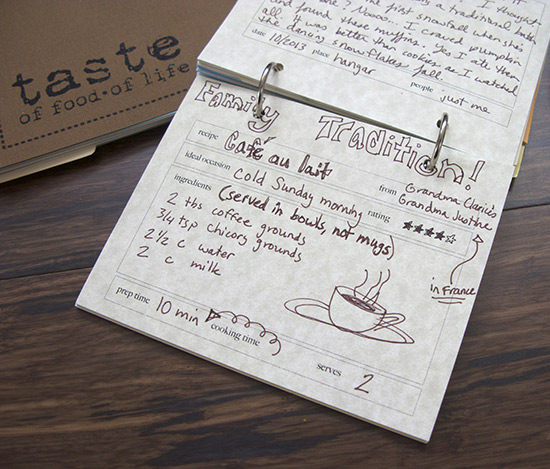 taste
of food·of life
I thought
a traditional
first snowfall when she's
one? Nooo... I craved pumpkin
and found these muffins. Yes I ate them
all. It was better than cookies as I watched
the dancing snowflakes fall.
date 10/2013 place hangar people just me
Family Tradition!
recipe Café au lait from Grandma Clarice's
Grandma Justine
ideal occasion cold Sunday morning rating ★★★★☆
ingredients (served in bowls, not mugs)
2 tbs coffee grounds
3/4 tsp chicory grounds
2 1/2 c water
2 c milk
in France
prep time 10 min cooking time serves 2